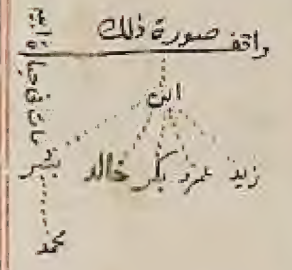 واقف صورة ذلك
ابن
زيد عمرو بكر خالد بشر
مات في حياة ابيه
محمد